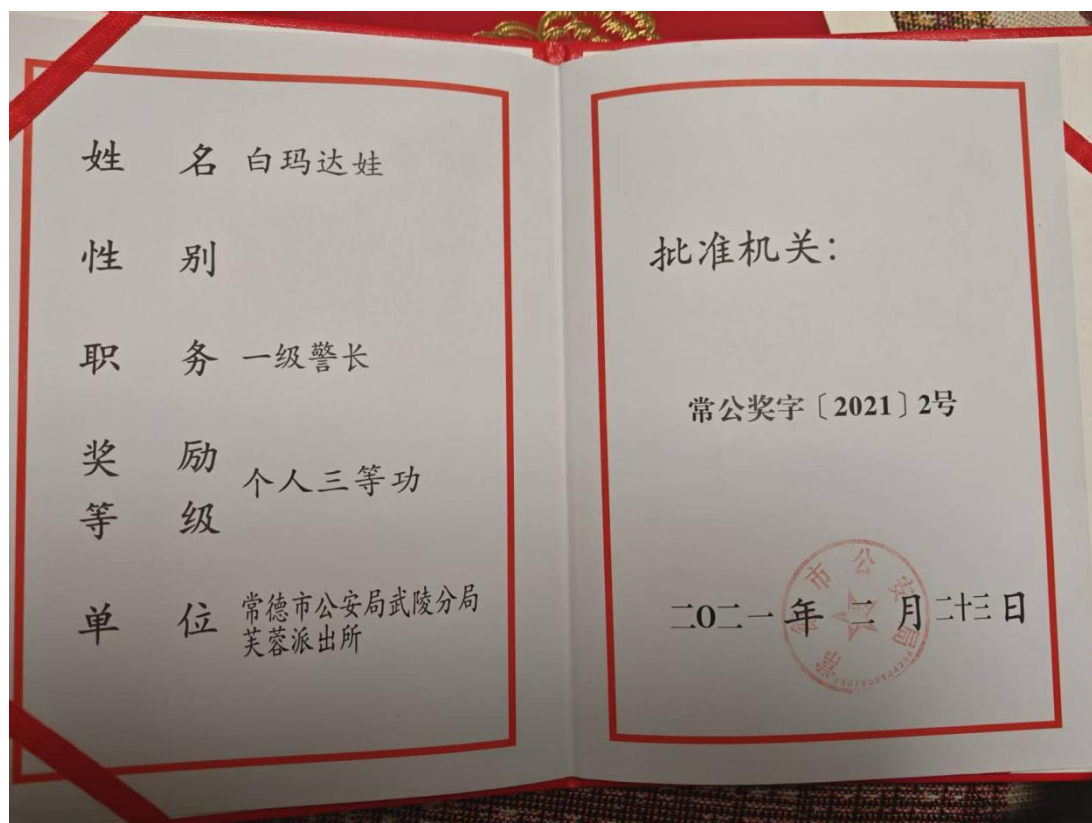 姓名 白玛达娃
性别
职务 一级警长
奖励
等级 个人三等功
单位 常德市公安局武陵分局
芙蓉派出所
批准机关：
常公奖字〔2021〕2号
二〇二一年 二月二十三日
常德市公安局